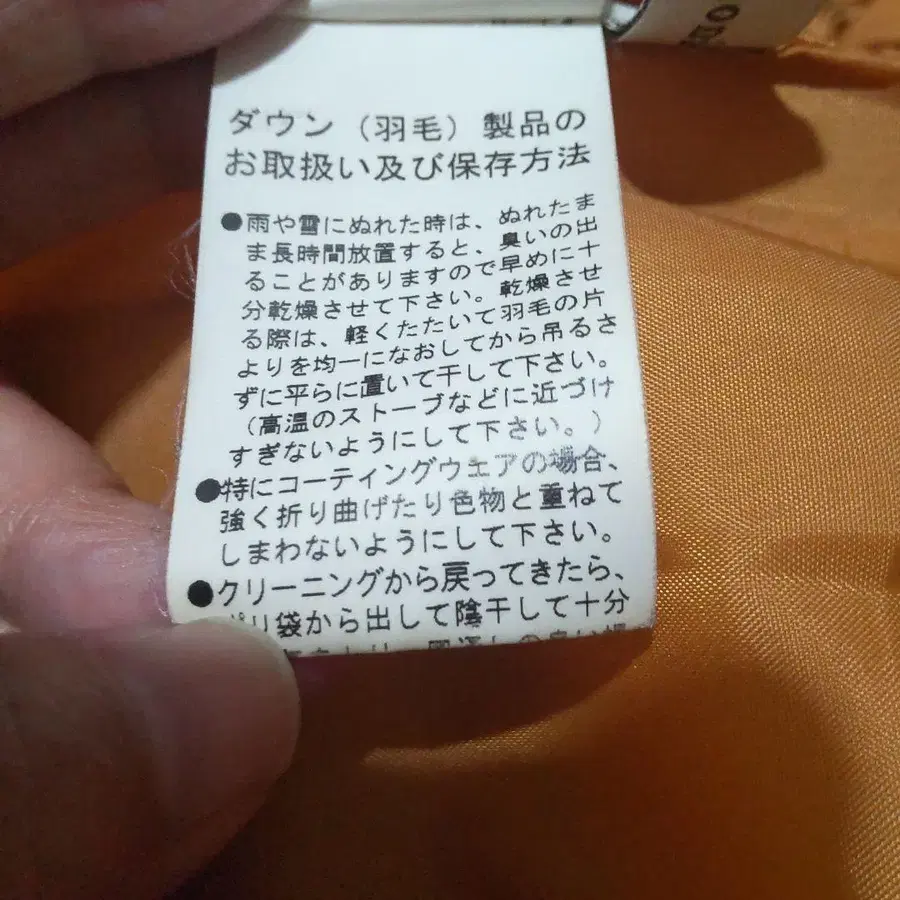 ダウン（羽毛）製品の
お取扱い及び保存方法
●雨や雪にぬれた時は、ぬれたま
ま長時間放置すると、臭いの出
ることがありますので早めに十
分乾燥させて下さい。乾燥させ
る際は、軽くたたいて羽毛の片
よりを均一になおしてから吊るさ
ずに平らに置いて干して下さい。
（高温のストーブなどに近づけ
すぎないようにして下さい。）
●特にコーティングウェアの場合、
強く折り曲げたり色物と重ねて
しまわないようにして下さい。
●クリーニングから戻ってきたら、
ポリ袋から出して陰干して十分